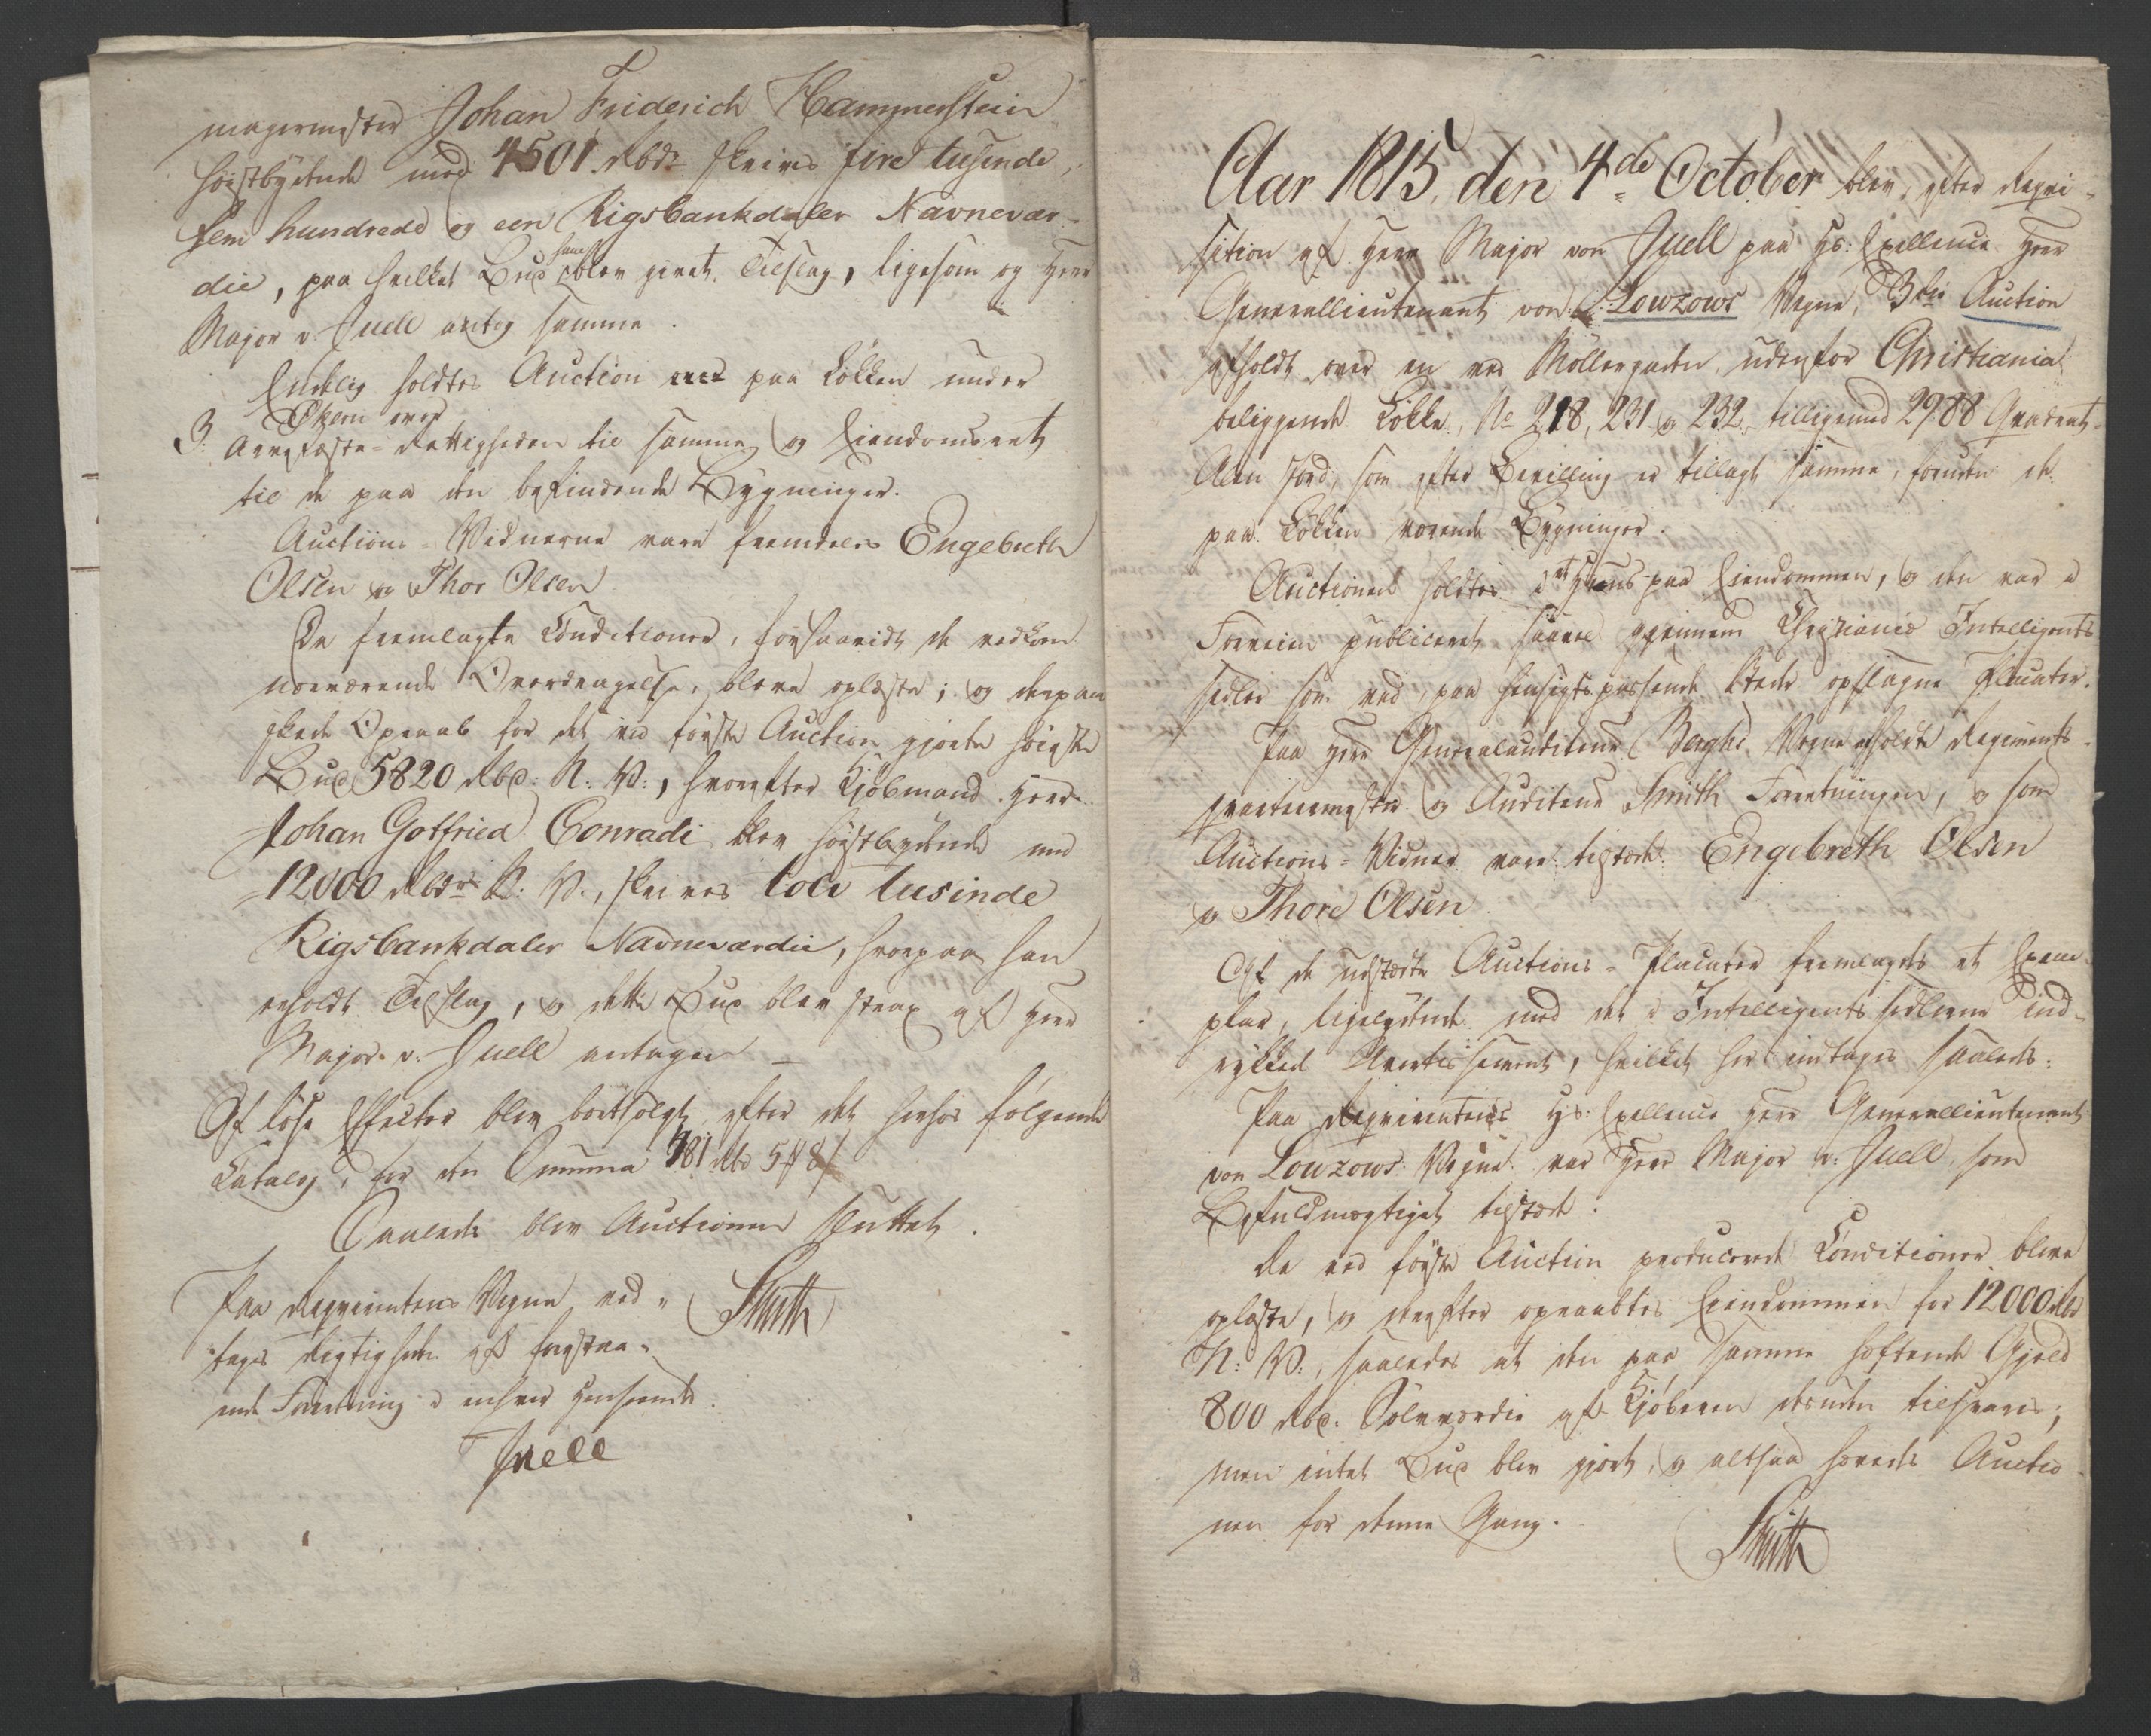 magermester Johan Friderich Hammerstein
høistbydende med 4501 Rbdr skrives fire tusinde,
fem hundrede og een Rigsbankdaler Navnevær-
die, paa hvilket Bud ham blev givet Tilslag, ligesom og Herr
Major v. Juell antog samme.
Endelig holdtes Auction paa Løkken under
Ekern over
3: Arvefæste-Rettigheden til samme og Eiendomsret
til de paa den befindende Bygninger.
Auctions-Vidnerne vare fremdeles Engebreth
Olsen og Thor Olsen
De fremlagte Conditioner, forsaavidt de vedkom
nærværende Overdragelse, bleve oplæste; og derpaa
skede Opraab for det ved første Auction gjorte høieste
Bud 5820 Rbd: N: V:, hvorefter Kjøbmand Herr
Johan Gotfried Conradi blev høistbydende med
12000 Rbdr N: V., skrives tolv tusinde
Rigsbankdaler Navneværdie, hvorpaa han
erholdt Tilslag, og dette Bud blev strax af Herr
Major v. Juell antagen —
Af løse Effecter blev bortsolgt efter det herhos følgende
Catalog, for den Summa 781 Rbd 5 # 8 #
Saaledes blev Auctionen sluttet.
Paa Reqvirentens Vegne ved-
tages Rigtigheden af forestaa-
ende Forretning i enhver Henseende.
Smith
Juell
Aar 1815, den 4de October blev, efter Reqvi-
sition af Herr Major von Juell paa Hs: Exellence Herr
Generallieutenant von Lowzows Vegne, 3die Auction
afholdt over en ved Møllergaden udenfor Christiania
beliggende Løkke, No 218, 231 og 232, tilligemed 2988 Qvadrat-
Alen Jord, som efter Bevilling er tillagt samme, foruden de
paa Løkken værende Bygninger.
Auctionen holdtes i et Huus paa Eiendommen, og den var i
Forveien publiceret saavel gjennem Christiania Intelligents
sedler som ved, paa hensigtspassende Steder opslagne Placater.
Paa Herr Generalauditeur Berghs Vegne afholdt Regiments-
qvarteermester og Auditeur Smith Forretningen, og som
Auctions-Vidner vare tilstæde Engebreth Olsen
og Thore Olsen
Af de udstædte Auctions-Placater fremlagdes et Exem-
plar, ligelydende med det i Intelligentssedlerne ind-
rykked Avertissement, hvilket her indtages saaledes:
Paa Reqvirentens Hs: Exellence Herr Generallieutenant
von Lowzows Vegne var Herr Major v. Juell, som
Befuldmægtiget tilstæde.
De ved første Auction producerede Conditioner bleve
oplæste, og derefter opraabtes Eiendommen for 12000 Rbd
N: V:, saaledes at den paa samme heftende Gjæld
800 Rbd. Sølvværdie af Kjøberen desuden tilsvares;
men intet Bud blev gjort, og altsaa hævedes Auctio-
nen for denne Gang.
Smith